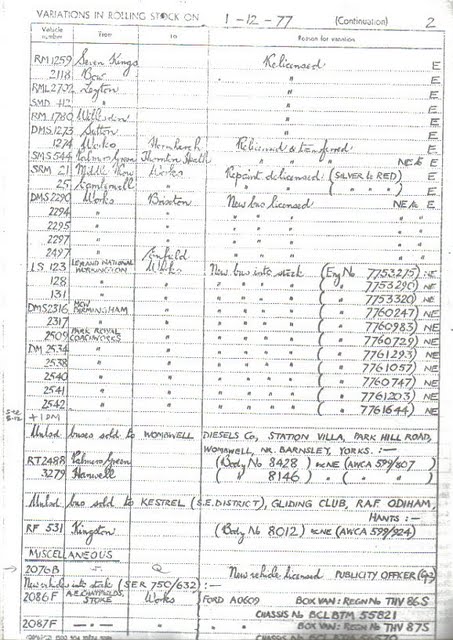 VARIATIONS IN ROLLING STOCK ON 1-12-77 (Continuation) 2
Vehicle number From To Reason for variation
RM 1259 Seven Kings Relicensed E
2118 Bow " E
RML 2702 Leyton " E
SMD 412 " " E
RM 1780 Willesden " E
DMS 1273 Sutton " E
1274 Works Hornchurch Relicensed & transferred E
SMS 544 Palmers Green Thornton Heath " " " NE to E
SRM 21 Middle Row Works Repaint delicensed (SILVER to RED) E
25 Camberwell " " " ( " " " ) E
DMS 2290 Works Brixton New bus licensed NE to E
2294 " " " " " " "
2295 " " " " " " "
2297 " " " " " " "
2497 " Enfield " " " " "
LS 123 LEYLAND NATIONAL WORKINGTON Works New bus into stock (Eng No 7753275) NE
128 " " " " " " ( " 7753290) NE
131 " " " " " " ( " 7753320) NE
DMS 2316 MCW BIRMINGHAM " " " " " ( " 7760247) NE
2317 " " " " " " ( " 7760983) NE
2509 PARK ROYAL COACHWORKS " " " " " ( " 7760729) NE
DM 2534 " " " " " " ( " 7761293) NE
2538 " " " " " " ( " 7761057) NE
2540 " " " " " " ( " 7760747) NE
2541 " " " " " " ( " 7761203) NE
2542 " " " " " " ( " 7761644) NE
+ 1 DM
Unlsd buses sold to WOMBWELL DIESELS Co, STATION VILLA, PARK HILL ROAD,
WOMBWELL, NR. BARNSLEY, YORKS. :—
RT 2488 Palmers Green (Body No 8428) NE (AWCA 599/807)
3279 Hanwell ( " 8146) " ( " " )
Unlsd bus sold to KESTREL (S.E. DISTRICT), GLIDING CLUB, RAF ODIHAM,
HANTS :—
RF 531 Kingston (Body No 8012) NE (AWCA 599/924)
MISCELLANEOUS
2076B Q New vehicle licensed PUBLICITY OFFICER
New vehicle into stock (SER 750/632) :—
2086F STOKE Works FORD A0609 BOX VAN: REGN No THV 86S
CHASSIS No BCLBTM 55821
2087F — " — " " BOX VAN: REGN No THV 87S